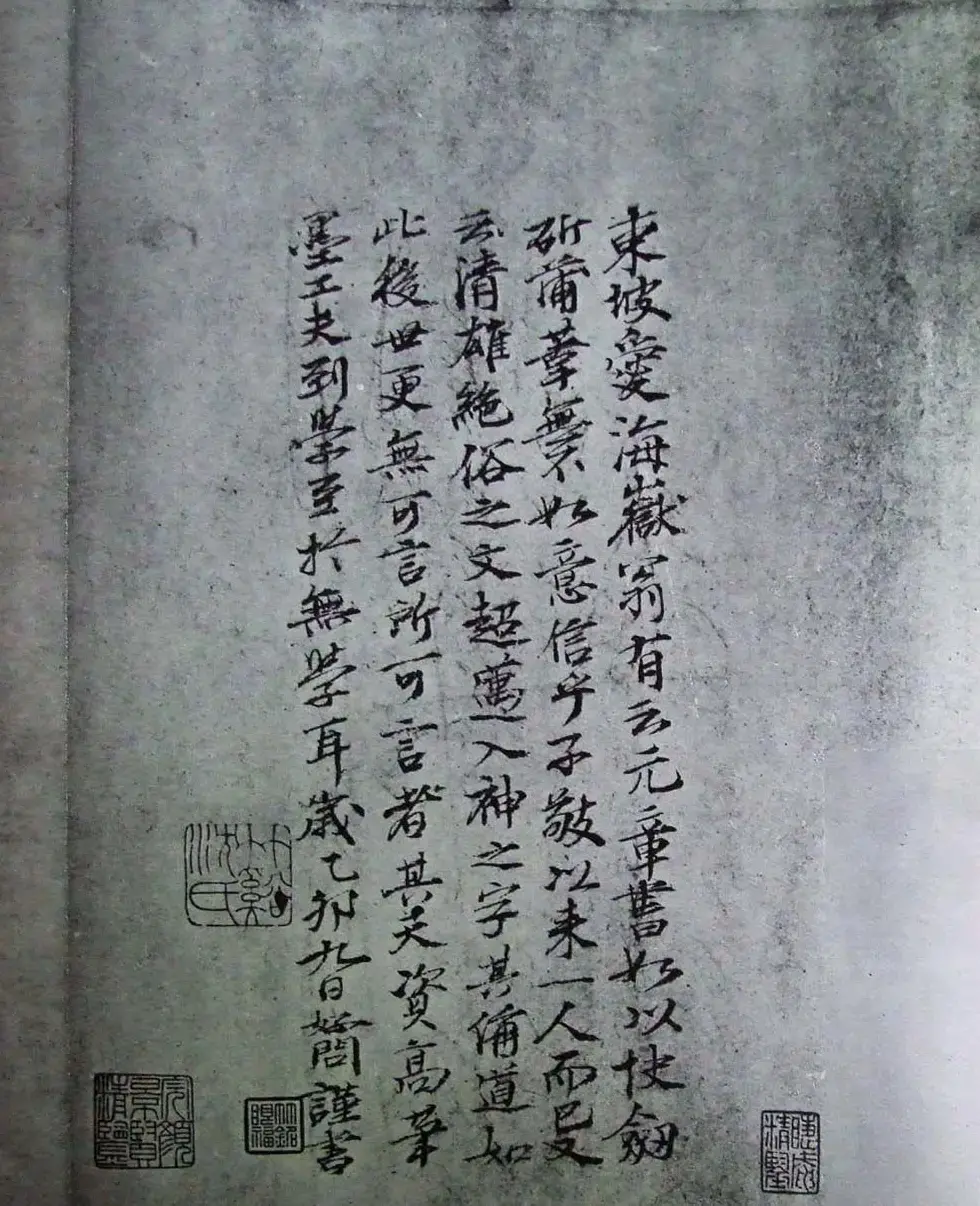 東坡愛海嶽翁有云元章書如以快劔
斫蒲葦無不如意信乎子敬以来一人而已又
云清雄絶俗之文超邁入神之字其偁道如
此後世更無可言所可言者其天資高筆
墨工夫到學至於無學耳歲乙卯九日好問謹書
沈氏
完顏景賢精鑒